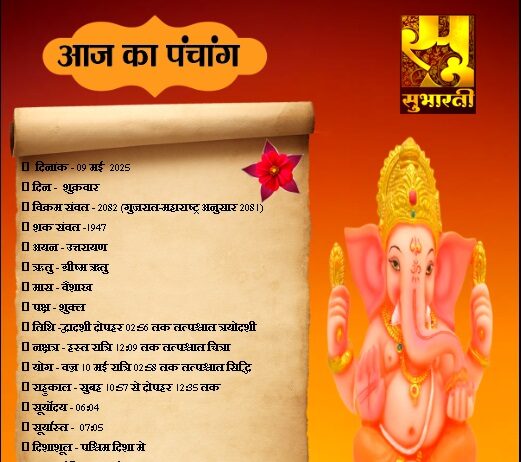 आज का पंचांग
सुभारती
दिनाक - 09 मई 2025
दिन - शुक्रवार
विक्रम संवत - 2082 (गुजरात-महाराष्ट्र अनुसार 2081)
शक संवत -1947
अयन - उत्तरायण
ऋतु - ग्रीष्म ऋतु
मास - वैशाख
पक्ष - शुक्ल
तिथि -द्वादशी दोपहर 02:56 तक तत्पश्चात त्रयोदशी
नक्षत्र - हस्त रात्रि 12:09 तक तत्पश्चात चित्रा
योग - वज्र 10 मई रात्रि 02:58 तक तत्पश्चात सिद्धि
राहुकाल - सुबह 10:57 से दोपहर 12:35 तक
सूर्योदय - 06:04
सूर्यास्त - 07:05
दिशाशूल - पश्चिम दिशा मे